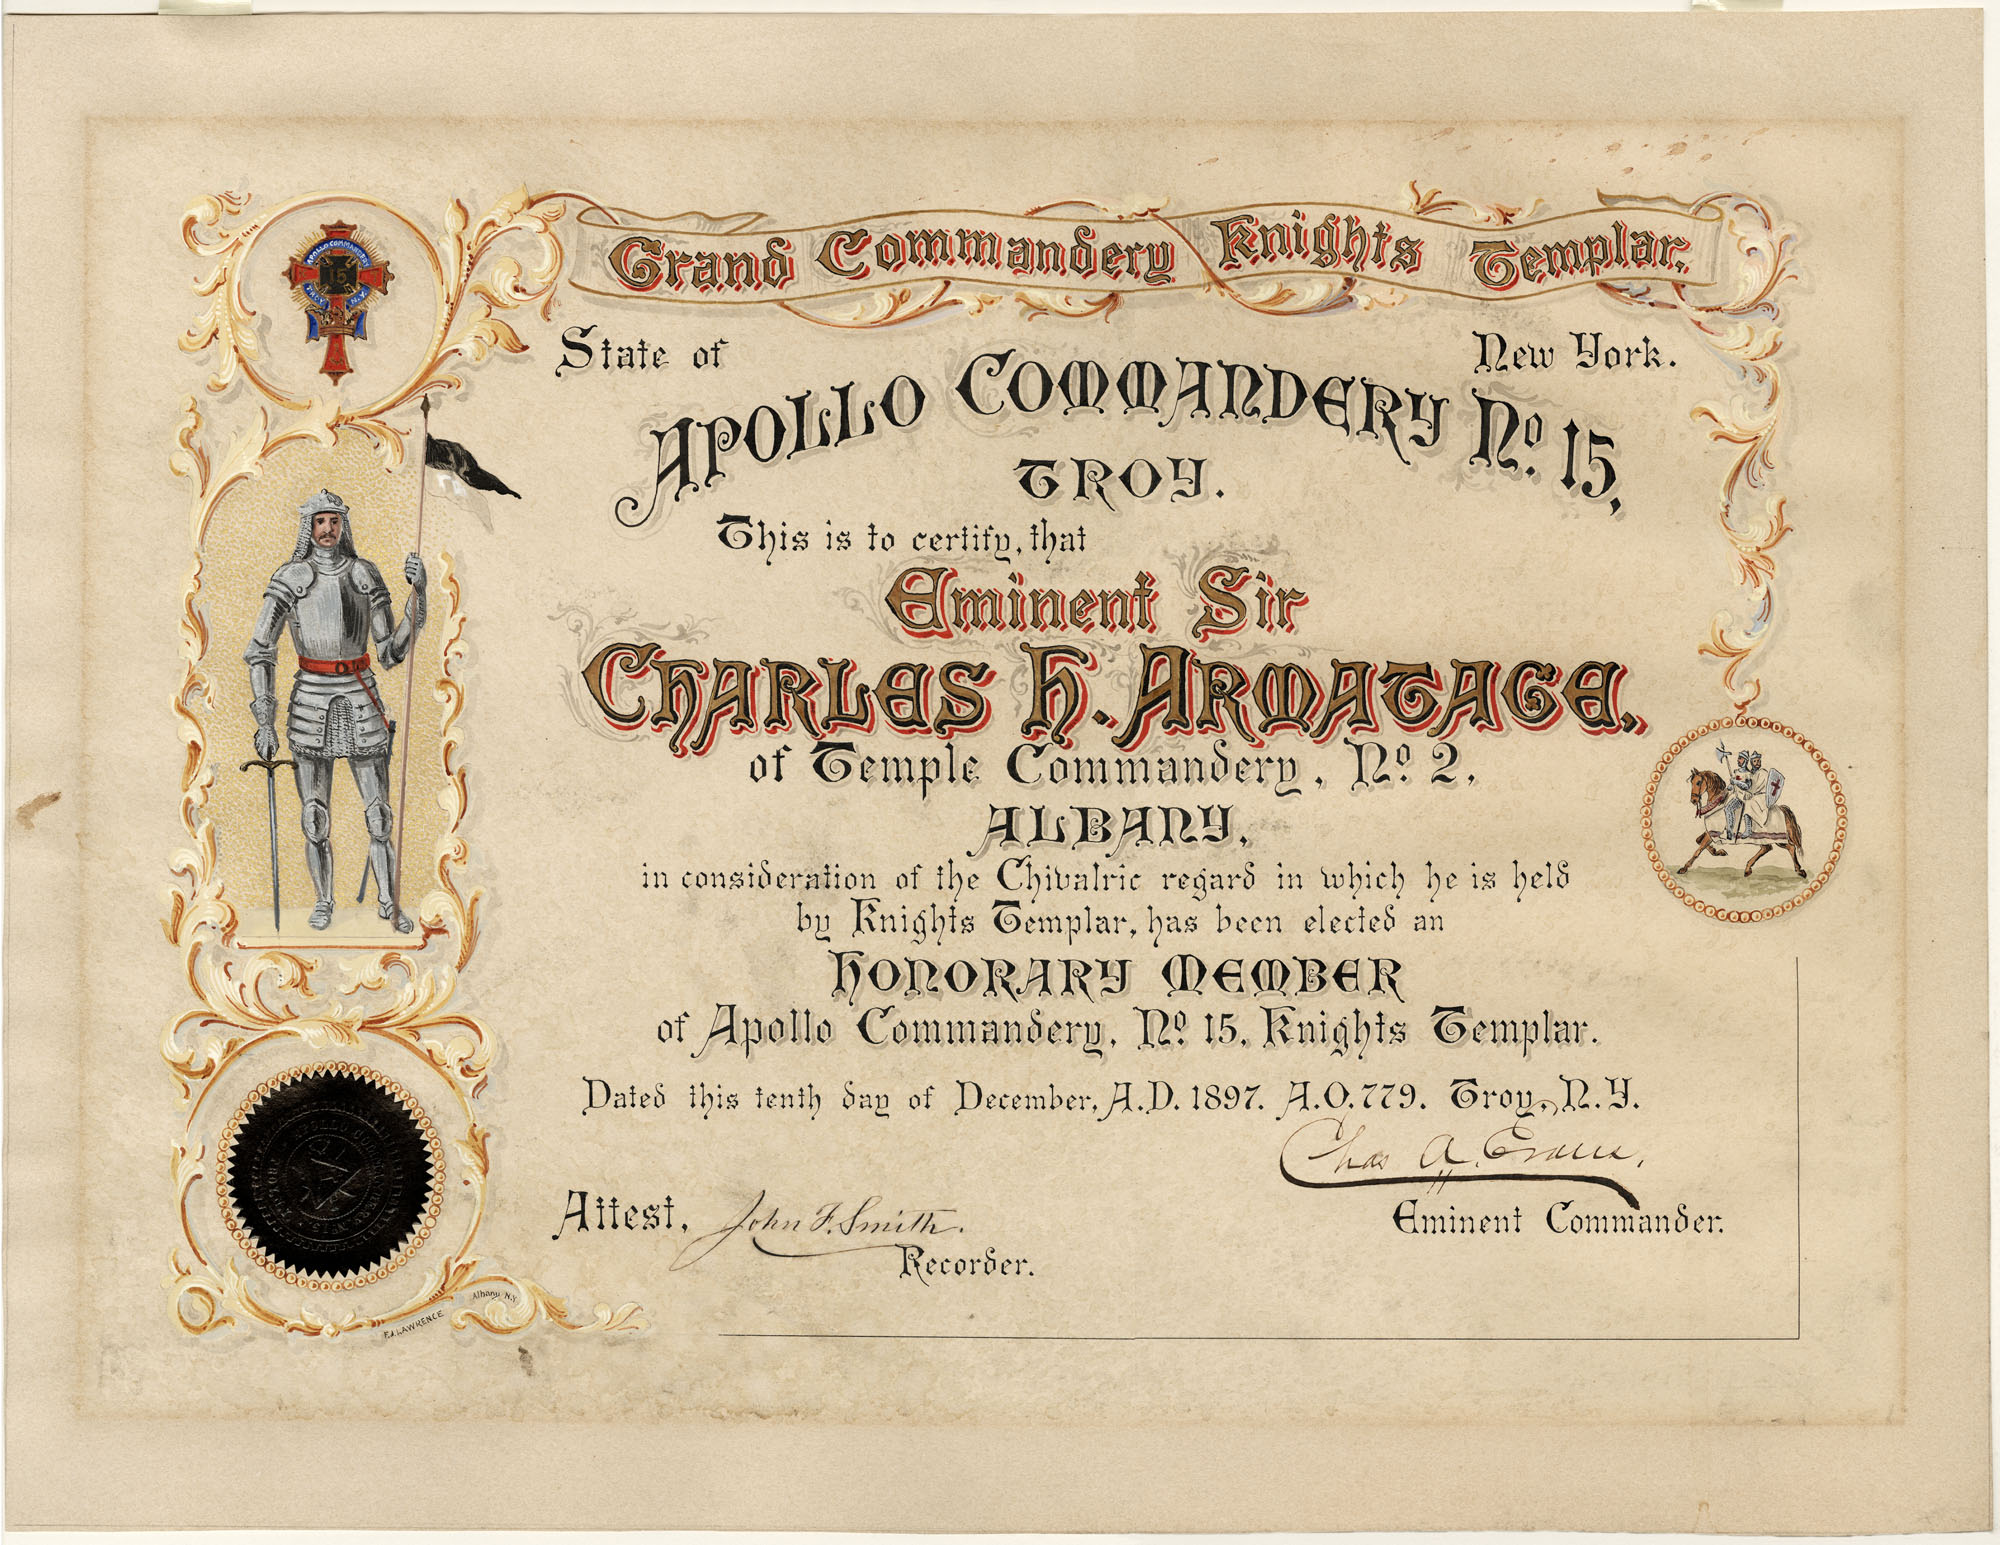 Grand Commandery Knights Templar.
APOLLO COMMANDERY
15
TROY N.Y.
State of New York.
APOLLO COMMANDERY No. 15,
TROY.
This is to certify, that
Eminent Sir
CHARLES H. ARMATAGE,
of Temple Commandery, No. 2,
ALBANY,
in consideration of the Chivalric regard in which he is held
by Knights Templar, has been elected an
HONORARY MEMBER
of Apollo Commandery, No. 15, Knights Templar.
Dated this tenth day of December, A.D. 1897. A.O. 779. Troy, N.Y.
Chas A. Evans,
Eminent Commander.
Attest, John F. Smith.
Recorder.
F.J. LAWRENCE Albany N.Y.